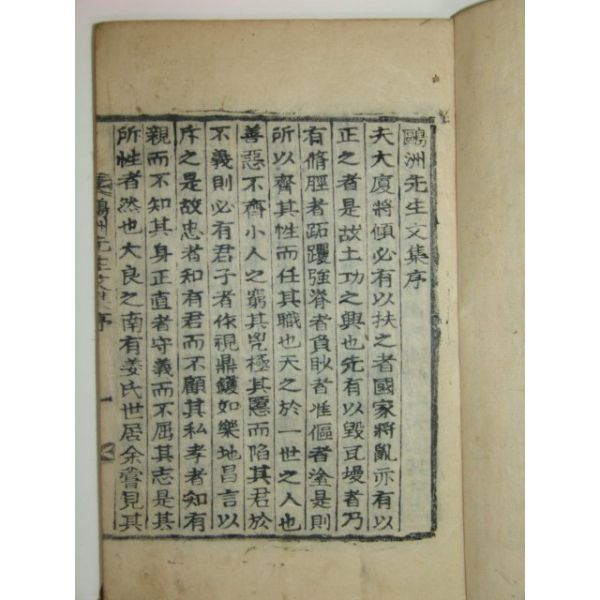 鷗洲先生文集序
夫大廈將傾必有以扶之者國家將亂亦有以
正之者是故土功之興也先有以毀瓦墁者乃
有脩脛者跖钁強脊者負眇者准傴者塗是則
所以齊其性而任其職也天之於一世之人也
善惡不齊小人之窮其兇極其惡而陷其君於
不義則必有君子者作視鼎鑊如樂地昌言以
斥之是故忠者和有君而不顧其私孝者知有
親而不知其身正直者守義而不屈其志是其
所性者然也大良之南有姜氏世居余嘗見其
鷗洲先生文集序 一